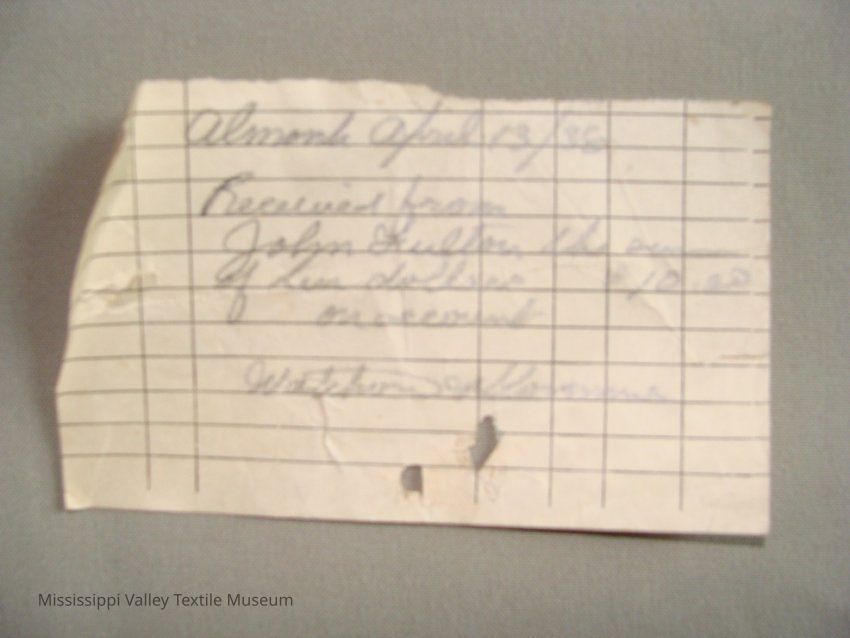 Almonte April 13/38
Received from
John Fulton the sum
of ten dollars $10.00
on account
Mississippi Valley Textile Museum